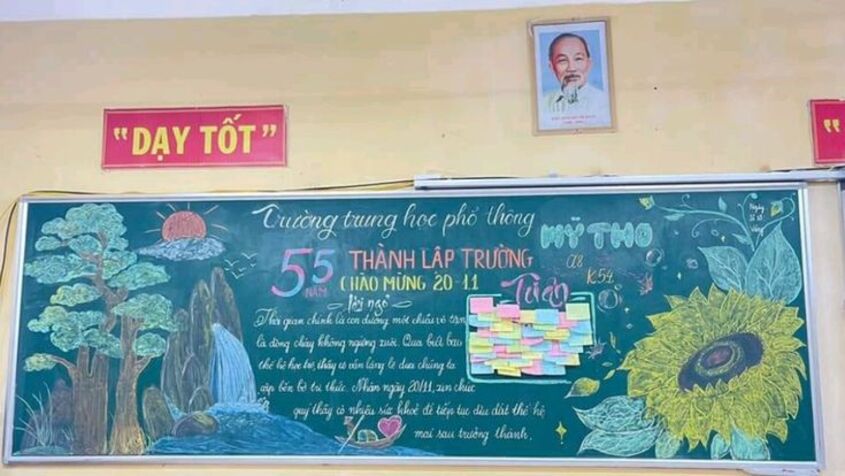 “DẠY TỐT”
“
Trường trung học phổ thông
MỸ THO
55 NĂM
THÀNH LẬP TRƯỜNG
CHÀO MỪNG 20-11
A8
K54
Lời ngỏ
Thời gian chính là con đường một chiều vô tận
là dòng chảy không ngừng xuôi. Qua biết bao
thế hệ học trò, thầy cô vẫn lặng lẽ đưa chúng ta
cập bến bờ tri thức. Nhân ngày 20/11, xin chúc
quý thầy cô nhiều sức khoẻ để tiếp tục dìu dắt thế hệ
mai sau trưởng thành.